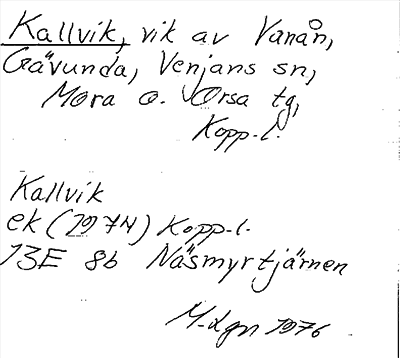 Kallvik, vik av Vanån,
Gävunda, Venjans sn,
Mora o. Orsa tg,
Kopp-l.
Kallvik
ek (1974) Kopp-l.
13E 8b Näsmyrtjärnen
1976